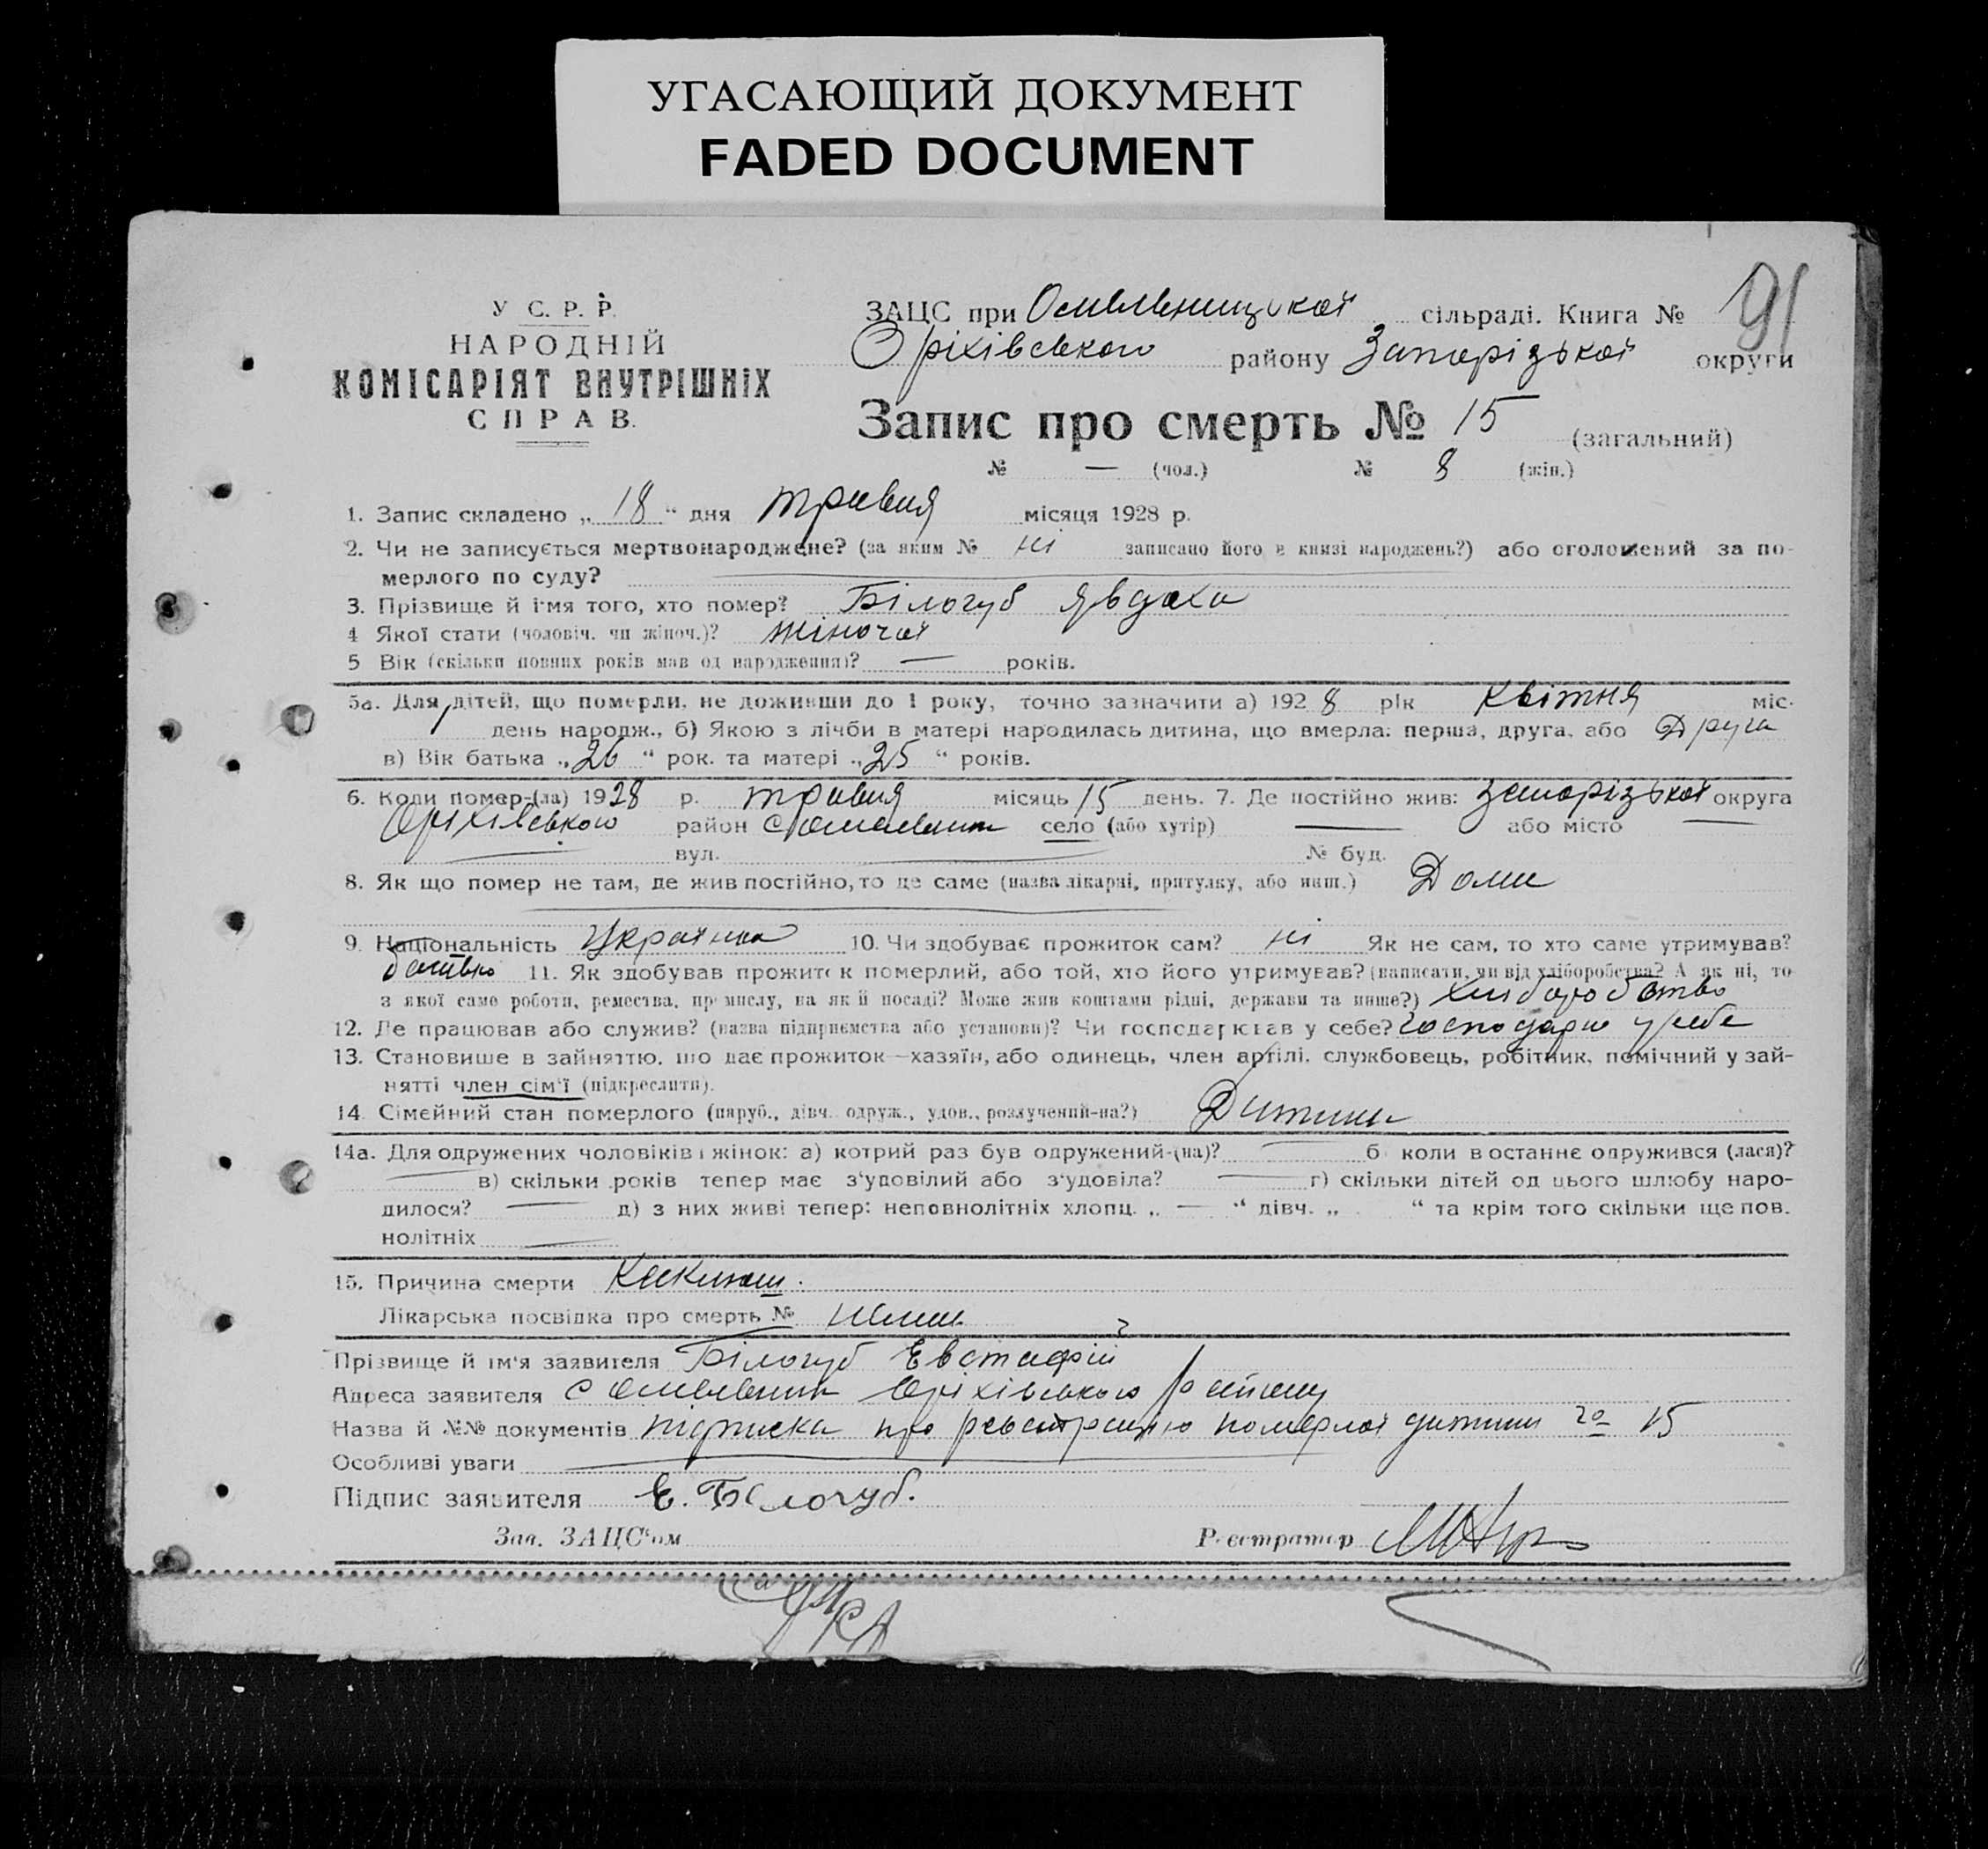 УГАСАЮЩИЙ ДОКУМЕНТ
FADED DOCUMENT
У С. Р. Р.
НАРОДНІЙ
КОМІСАРІЯТ ВНУТРІШНІХ
СПРАВ.
91
ЗАЦС при сільраді. Книга №
Оріхівського району Запорізької округи
Запис про смерть № 15 (загальний)
№ — (чол.) № 8 (жін.)
1. Запис складено „ 18 “ дня травня місяця 1928 р.
2. Чи не записується мертвонароджене? (за яким № ні записано його в книзі народжень?) або оголошений за по-
мерлого по суду?
3. Прізвище й ім'я того, хто помер? Білогуб Явдоха
4 Якої стати (чоловіч. чи жіноч.)? жіночої
5 Вік (скільки повних років мав од народження)? — років.
5а. Для дітей, що померли, не доживши до 1 року, точно зазначити а) 1928 рік квітня міс.
день народж., б) Якою з лічби в матері народилась дитина, що вмерла: перша, друга, або Друга
в) Вік батька „ 26 “ рок. та матері „ 25 “ років.
6. Коли помер-(ла) 1928 р. травня місяць 15 день. 7. Де постійно жив: Запорізької округа
Оріхівського район с село (або хутір) — або місто
вул. № буд.
8. Як що помер не там, де жив постійно, то де саме (назва лікарні, притулку, або инш.) Дома
9. Національність Українка 10. Чи здобуває прожиток сам? ні Як не сам, то хто саме утримував?
батько 11. Як здобував прожиток померлий, або той, хто його утримував? (написати, чи від хліборобства? А як ні, то
з якої саме роботи, ремества, промислу, на якій посаді? Може жив коштами рідні, держави та инше?) хліборобство
12. Де працював або служив? (назва підприємства або установи)? Чи господарював у себе? господарю у себе
13. Становище в зайняттю, що дає прожиток—хазяїн, або одинець, член артілі, службовець, робітник, помічний у зай-
нятті член сім'ї (підкреслити).
14. Сімейний стан померлого (паруб., дівч. одруж., удов., розлучений-на?) Дитина
14а. Для одружених чоловіків і жінок: а) котрий раз був одружений-(на)? — б коли в останнє одружився (лася)?
— в) скільки років тепер має з'удовілий або з'удовіла? — г) скільки дітей од цього шлюбу наро-
дилося? — д) з них живі тепер: неповнолітніх хлопц. „ — “ дівч. „ “ та крім того скільки ще пов.
нолітніх —
15. Причина смерти
Лікарська посвідка про смерть № нема
Прізвище й ім'я заявителя Білогуб Евстафій
Адреса заявителя с Оріхівського району
Назва й №№ документів підписка про реєстрацію померлої дитини 15
Особливі уваги
Підпис заявителя Е. Білогуб.
Зав. ЗАЦС'ом Реєстратор